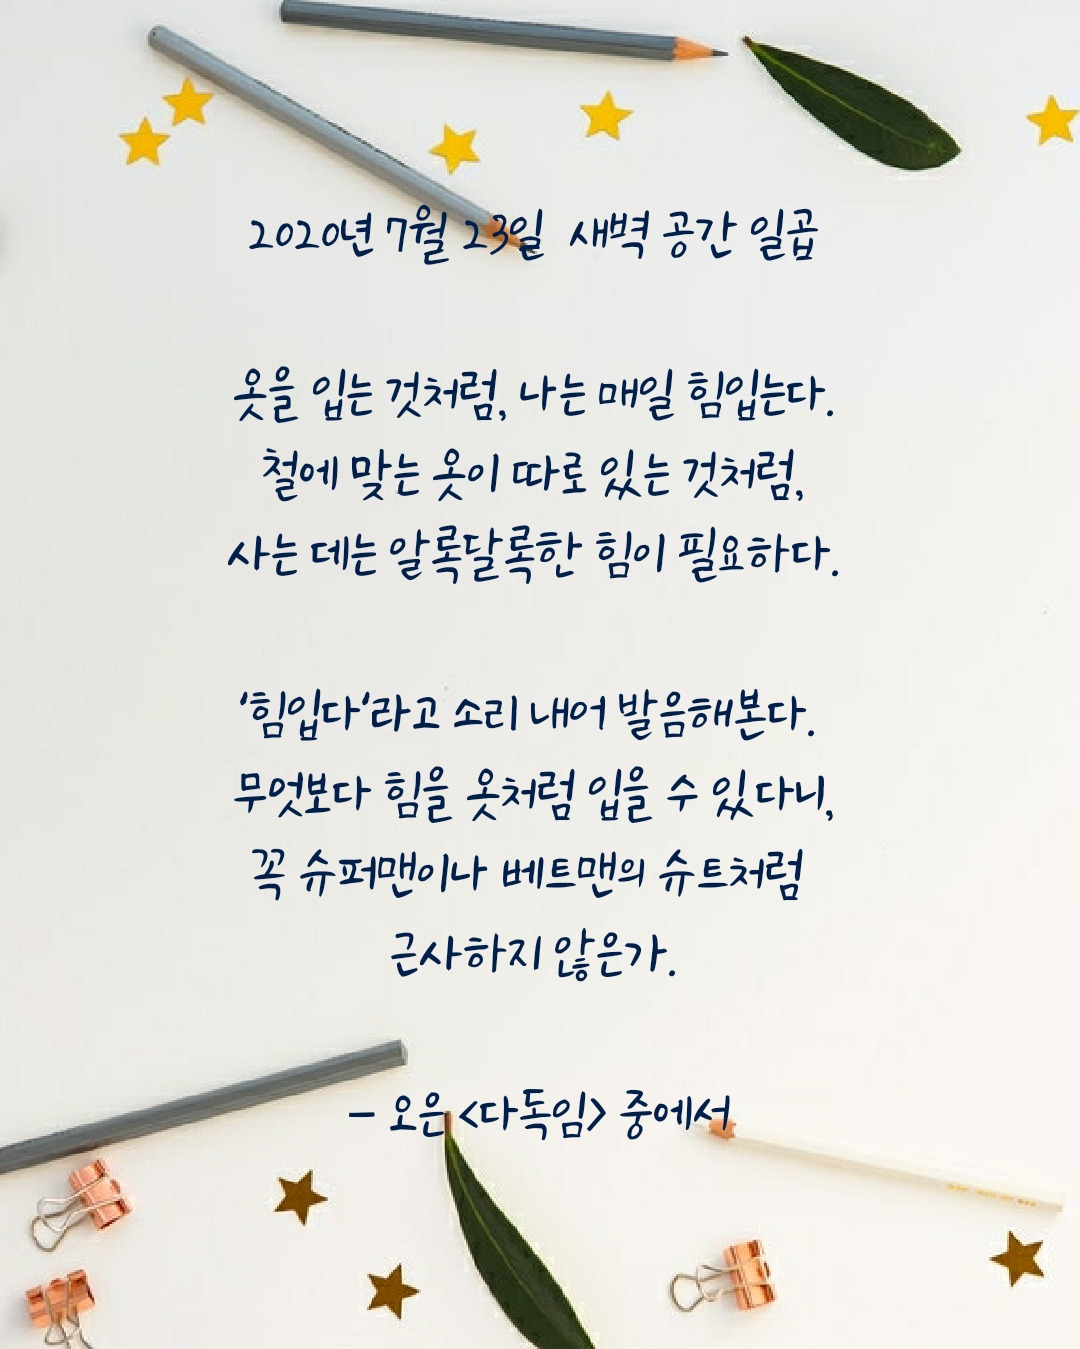 2020년 7월 23일 새벽 공간 일곱
옷을 입는 것처럼, 나는 매일 힘입는다.
철에 맞는 옷이 따로 있는 것처럼,
사는 데는 알록달록한 힘이 필요하다.
'힘입다'라고 소리 내어 발음해본다.
무엇보다 힘을 옷처럼 입을 수 있다니,
꼭 슈퍼맨이나 베트맨의 슈트처럼
근사하지 않은가.
- 오은 <다독임> 중에서